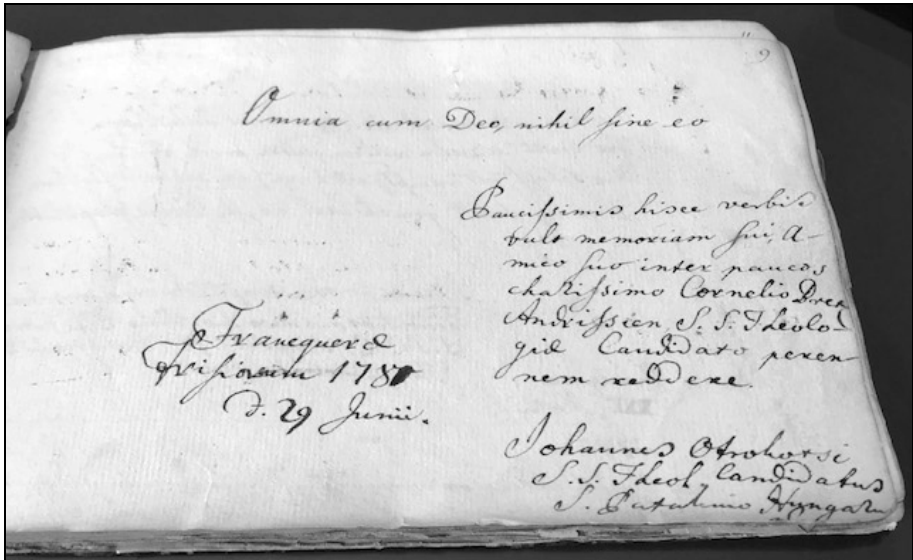 9
Omnia cum Deo, nihil sine eo
Paucissimis hisce verbis
vult memoriam sui, A-
mico suo inter paucos
charissimo Cornelio
Andrissien, S. S. Theolo-
giæ Candidato peren-
nem reddere.
Franequeræ
Frisiorum
d. 29 Junii.
Johannes Otrokotsi
S. S. Theol. Candidatus
S. Patakino Hungarus